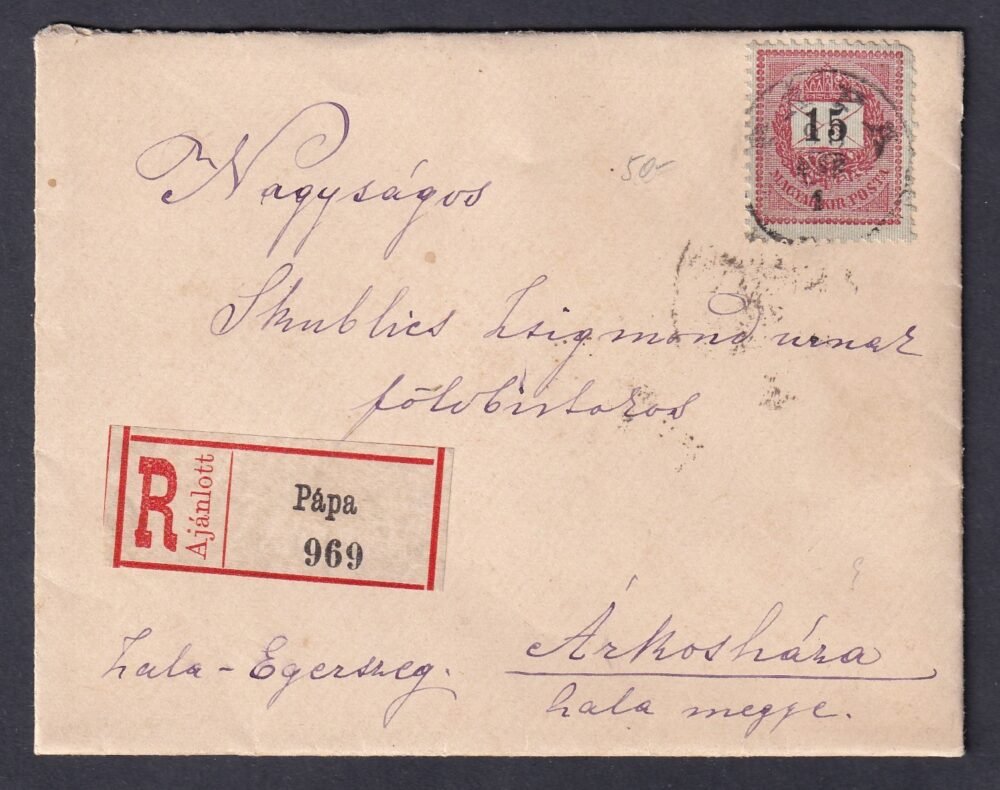 15
MAGYAR KIR. POSTA
50-
Nagyságos
Skublics Zsigmond urnak
földbirtokos
R
Ajánlott
Pápa
969
Árkosháza
Zala-Egerszeg.
Zala megye.